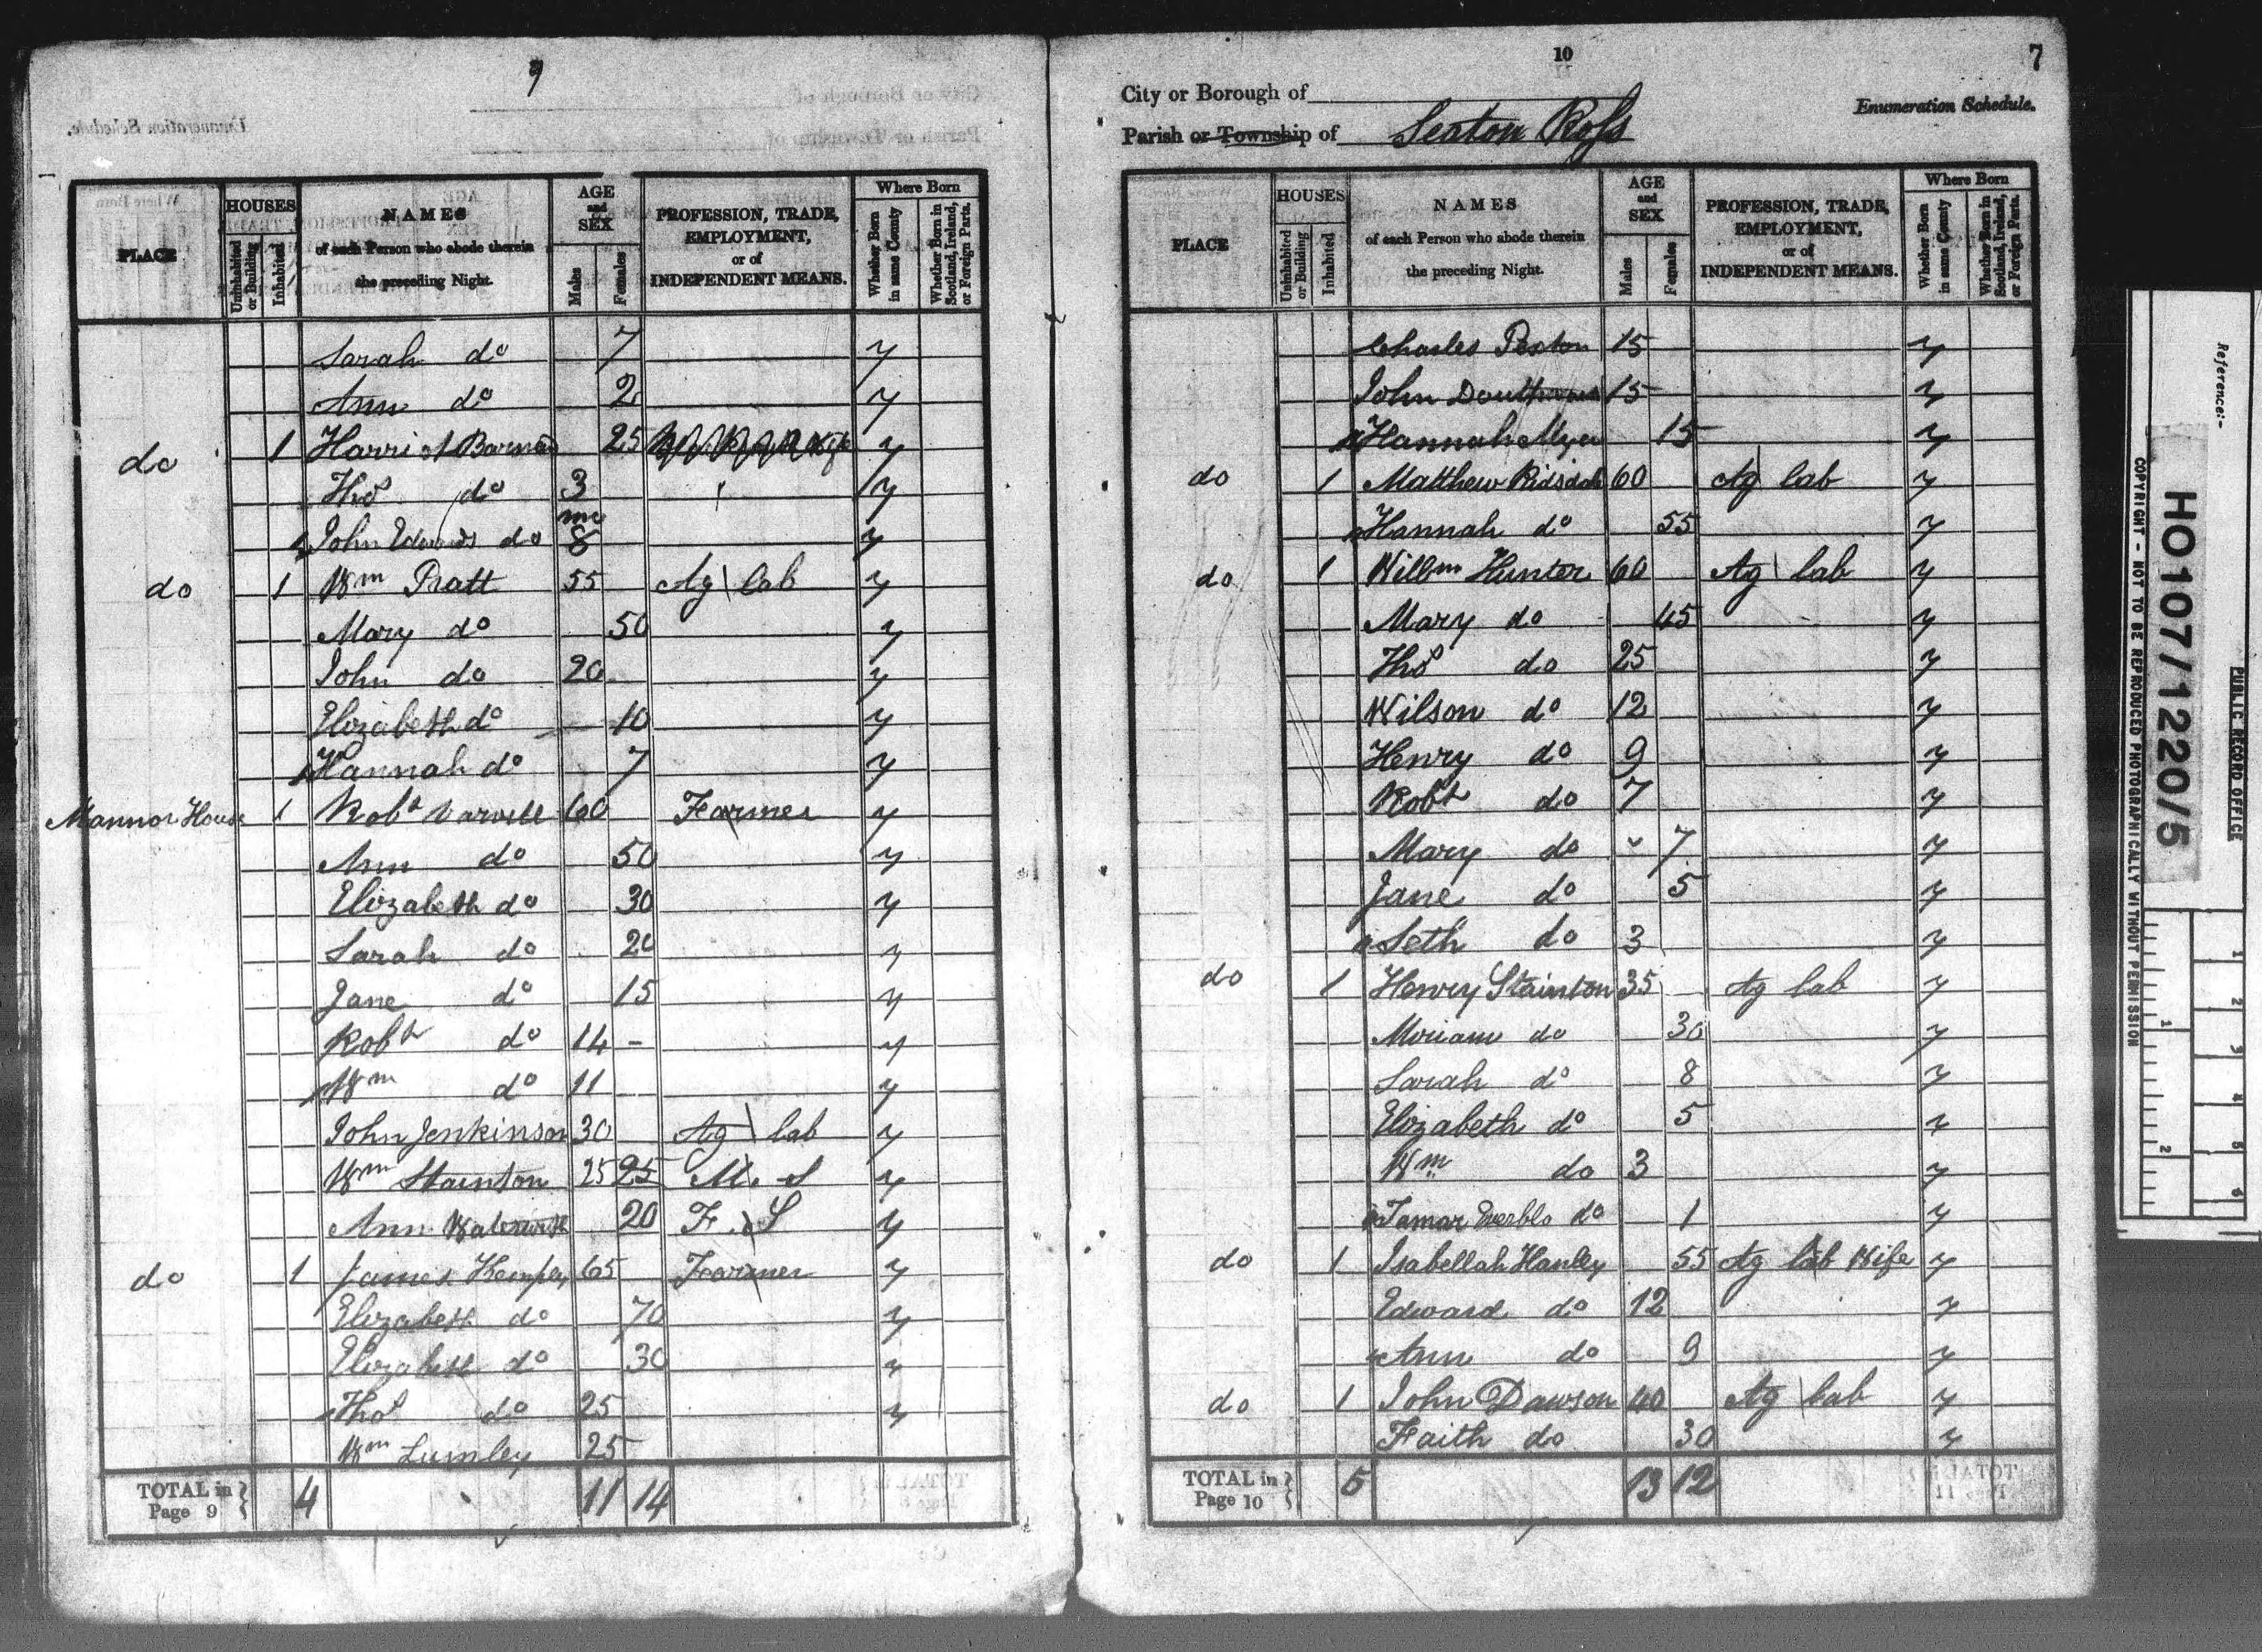 9
PLACE
HOUSES
Uninhabited or Building
Inhabited
NAMES
of each Person who abode therein
the preceding Night.
AGE
and
SEX
Males
Females
PROFESSION, TRADE,
EMPLOYMENT,
or of
INDEPENDENT MEANS.
Where Born
Whether Born in same County
Whether Born in Scotland, Ireland, or Foreign Parts.
Sarah do 7 y
Ann do 2 y
do 1 Harriot 25 Wife y
Thos do 3 y
John Edwards do mo 8 y
do 1 Wm Pratt 55 Ag lab y
Mary do 50 y
John do 20 y
Elizabeth do 10 y
Hannah do 7 y
Mannor House 1 Robt 60 Farmer y
Ann do 50 y
Elizabeth do 30 y
Sarah do 20 y
Jane do 15 y
Robt do 14 - y
Wm do 11 y
John Jenkinson 30 Ag lab y
Wm Stainton 25 25 M. S y
Ann 20 F. S y
do 1 James 65 Farmer y
Elizabeth do 70 y
Elizabeth do 30 y
Thos do 25 y
Wm Lumley 25
TOTAL in Page 9 } 4 11 14
10
7
City or Borough of
Enumeration Schedule.
Parish or Township of Seaton Ross
PLACE
HOUSES
Uninhabited or Building
Inhabited
NAMES
of each Person who abode therein
the preceding Night.
AGE
and
SEX
Males
Females
PROFESSION, TRADE,
EMPLOYMENT,
or of
INDEPENDENT MEANS.
Where Born
Whether Born in same County
Whether Born in Scotland, Ireland, or Foreign Parts.
Charles Pexton 15 y
John 15 y
Hannah Myer 15 y
do 1 Matthew Ridsdale 60 Ag lab y
Hannah do 55 y
do 1 Willm Hunter 60 Ag lab y
Mary do 45 y
Thos do 25 y
Wilson do 12 y
Henry do 9 y
Robt do 7 y
Mary do 7 y
Jane do 5 y
Seth do 3 y
do 1 Henry Stainton 35 Ag lab y
Miriam do 30 y
Sarah do 8 y
Elizabeth do 5 y
Wm do 3 y
Tamar do 1 y
do 1 Isabellah Hanley 55 Ag lab Wife y
Edward do 12 y
Ann do 9 y
do 1 John Dawson 40 Ag lab y
Faith do 30 y
TOTAL in Page 10 } 5 13 12
Reference:-
PUBLIC RECORD OFFICE
HO107/1220/5
COPYRIGHT - NOT TO BE REPRODUCED PHOTOGRAPHICALLY WITHOUT PERMISSION
1
2
3
4
5
6
1
2